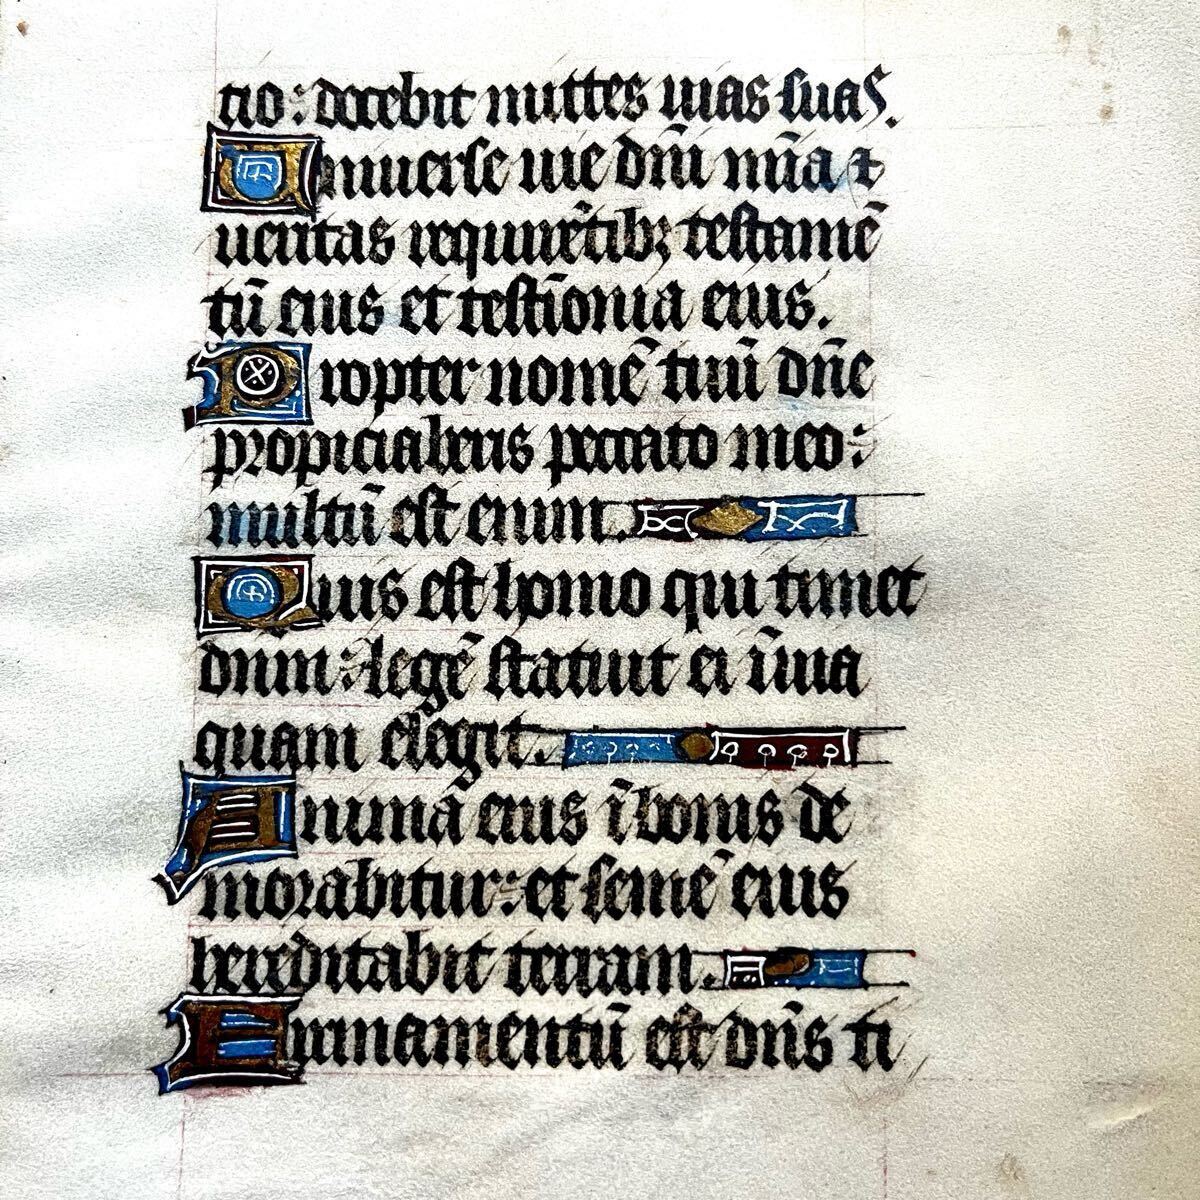 tio: docebit mittes uias suas.
Uniuerse uie dñi mĩa ⁊
ueritas requirẽtibꝫ testamẽ
tũ eius et testĩonia eius.
Propter nomẽ tuũ dñe
propiciaberis peccato meo:
multũ est enim.
Quis est homo qui timet
dnm: legẽ statuit ei ĩ uia
quam elegit.
Animã eius ĩ bonis de
morabitur: et semẽ eius
hereditabit terram.
Firmamentũ est dñs ti